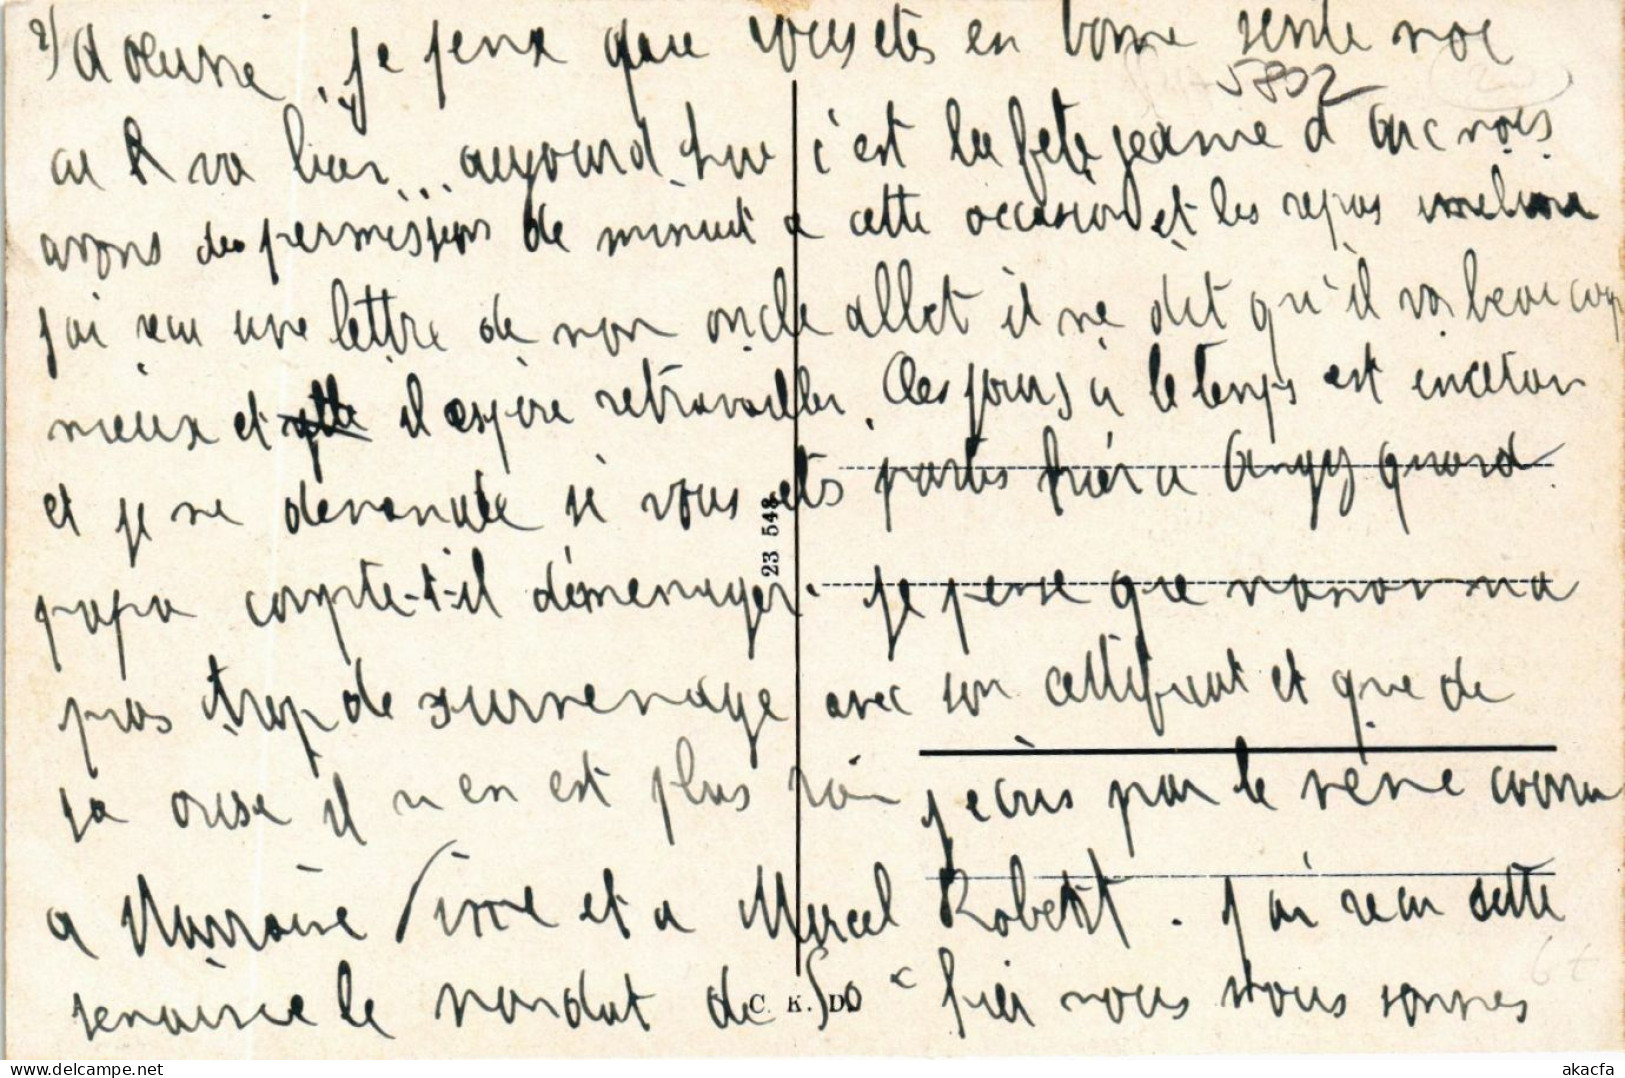 2) je pense que vous etes en bonne sente moi
5802
ca va bien... aujourd hui c'est la fete jeanne d arc nous
avons des permissions de minuit a cette occasion et les repas
j'ai recu une lettre de mon oncle allet il me dit qu'il va beaucoup
mieux et il espère retravailler. Ces jours ci le temps est incetain
et je me demande si vous ets partis hier a Angy quand
papa compte-t-il démenager. je pense que maman n'a
pas trop de surmenage avec son cettificat et que de
sa crise il n en est plus rien j ecris par le meme courru
a Marraine Simone et a Marcel Robetit. j ai recu sette
semaine le mandat de 50 c hier nous nous sommes
23 548
C. K. D
akacfa